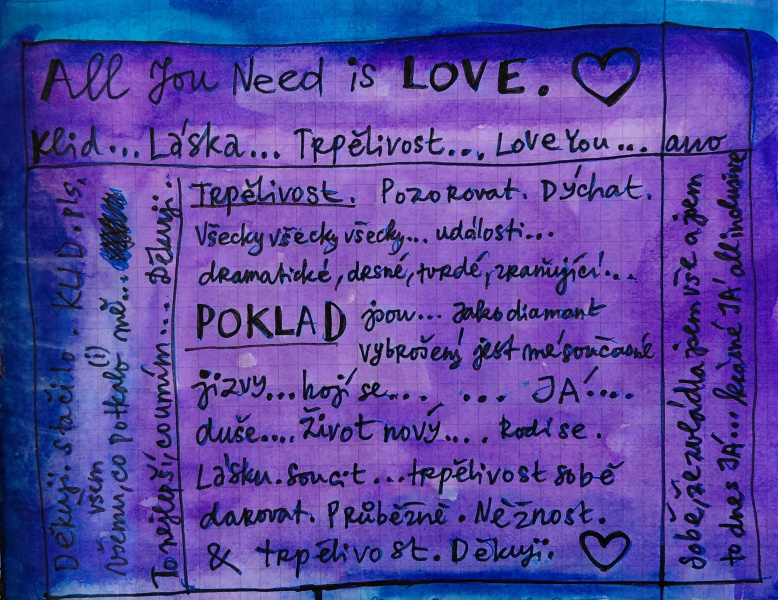 All You Need is LOVE.
Klid... Láska... Trpělivost... Love You... ano
Trpělivost. Pozorovat. Dýchat.
Všecky všecky všecky... události...
dramatické, drsné, tvrdé, zraňující...
POKLAD jsou... Jako diamant
vybroušený jest mé současné
jizvy... hojí se.... ... JÁ....
duše.... Život nový.... Rodí se.
Lásku. Soucit... trpělivost sobě
darovat. Průběžně. Něžnost.
& trpělivost. Děkuji.
Děkuji. stačilo. KLID. pls.
všem (i)
všemu, co potkalo mě...
To nejlepší, co umím... Děkuji..
Sobě, že zvládla jsem vše a jsem
to dnes JÁ... krásné JÁ all inclusive